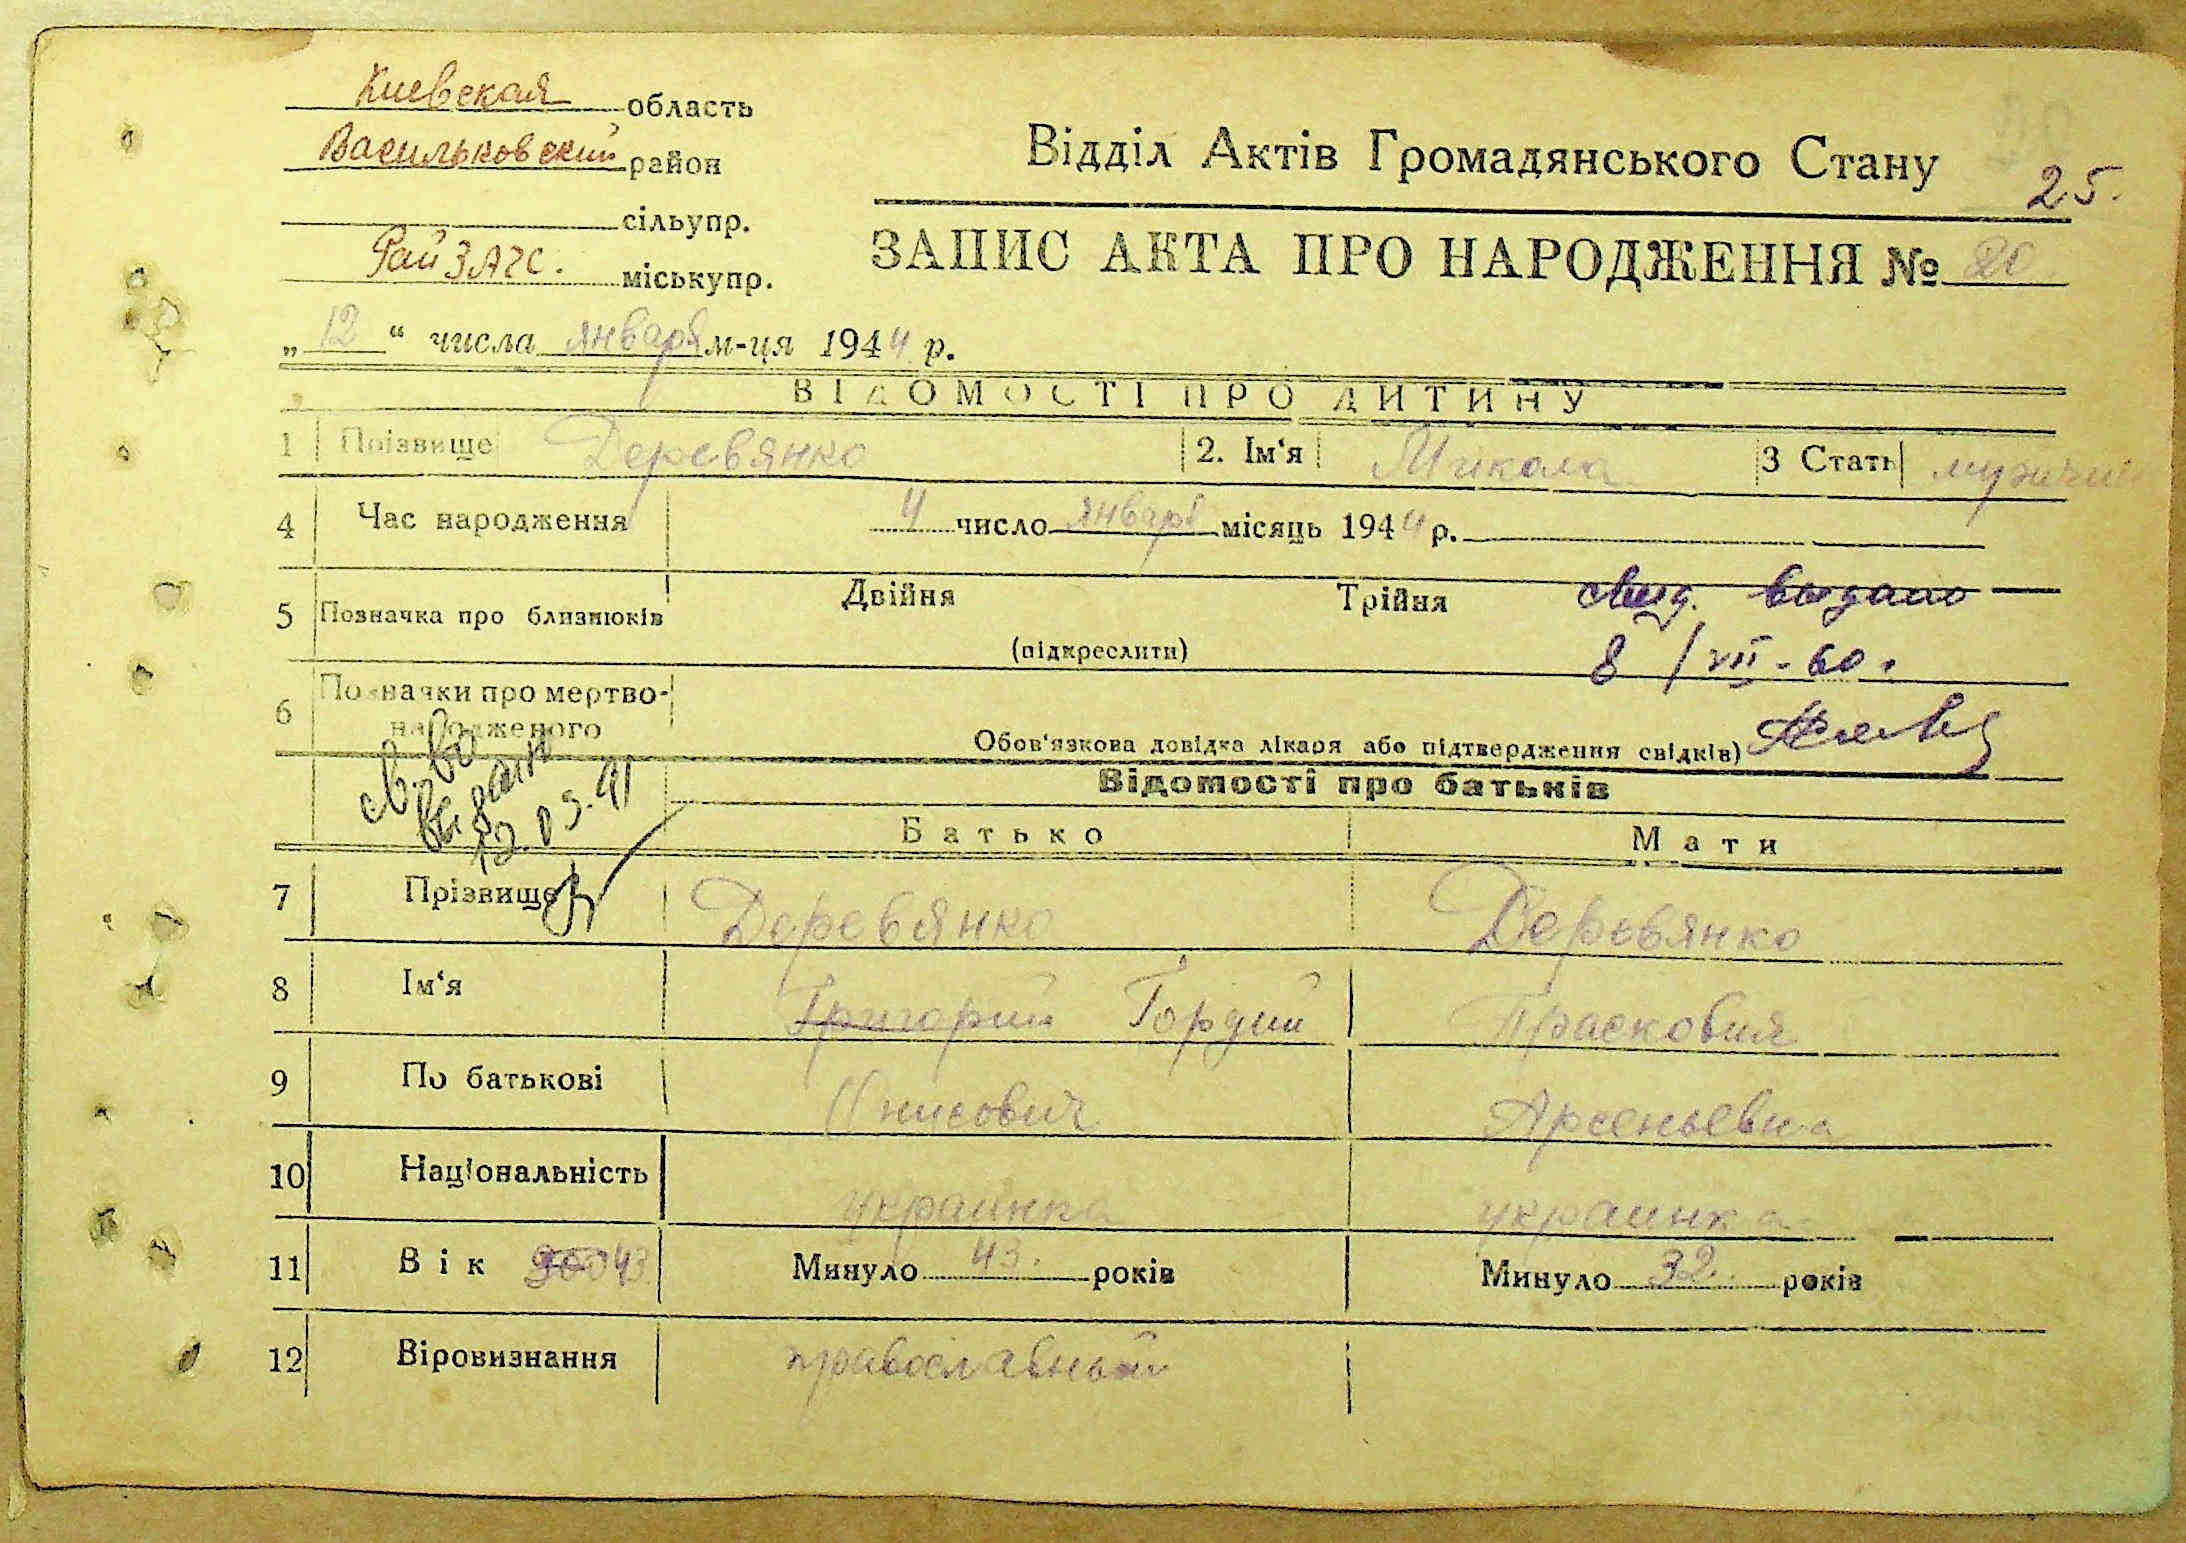 Киевская область
Васильковский район
сільупр.
Рай ЗАГС. міськупр.
Відділ Актів Громадянського Стану
25.
ЗАПИС АКТА ПРО НАРОДЖЕННЯ № 20
„ 12 “ числа января м-ця 1944 р.
ВІДОМОСТІ ПРО ДИТИНУ
1 Прізвище Деревянко 2. Ім‘я Микола 3 Стать
4 Час народження 4 число января місяць 1944 р.
5 Позначка про близнюків Двійня Трійня
(підкреслити)
выдано
8 / VII - 60.
6 Позначки про мертво-
народженого
Обов‘язкова довідка лікаря або підтвердження свідків)
св-во
выдано
12.09.91
Відомості про батьків
Батько Мати
7 Прізвище Деревянко Деревянко
8 Ім‘я Григорий Гордий Прасковия
9 По батькові Онисович Арсеньевна
10 Національність украинка украинка
11 Вік 43 Минуло 43. років Минуло 32. років
12 Віровизнання православный